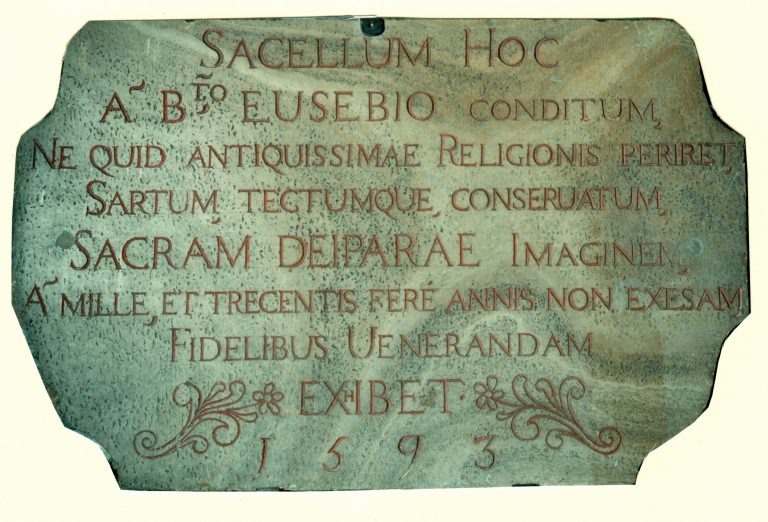 SACELLUM HOC
A˜ B͠TO EUSEBIO CONDITUM,
NE QUID ANTIQUISSIMAE RELIGIONIS PERIRET,
SARTUM, TECTUMQUE, CONSERUATUM,
SACRAM DEIPARAE IMAGINEM,
A˜ MILLE, ET TRECENTIS FERÉ ANNIS NON EXESAM
FIDELIBUS UENERANDAM
EXHIBET.
1593